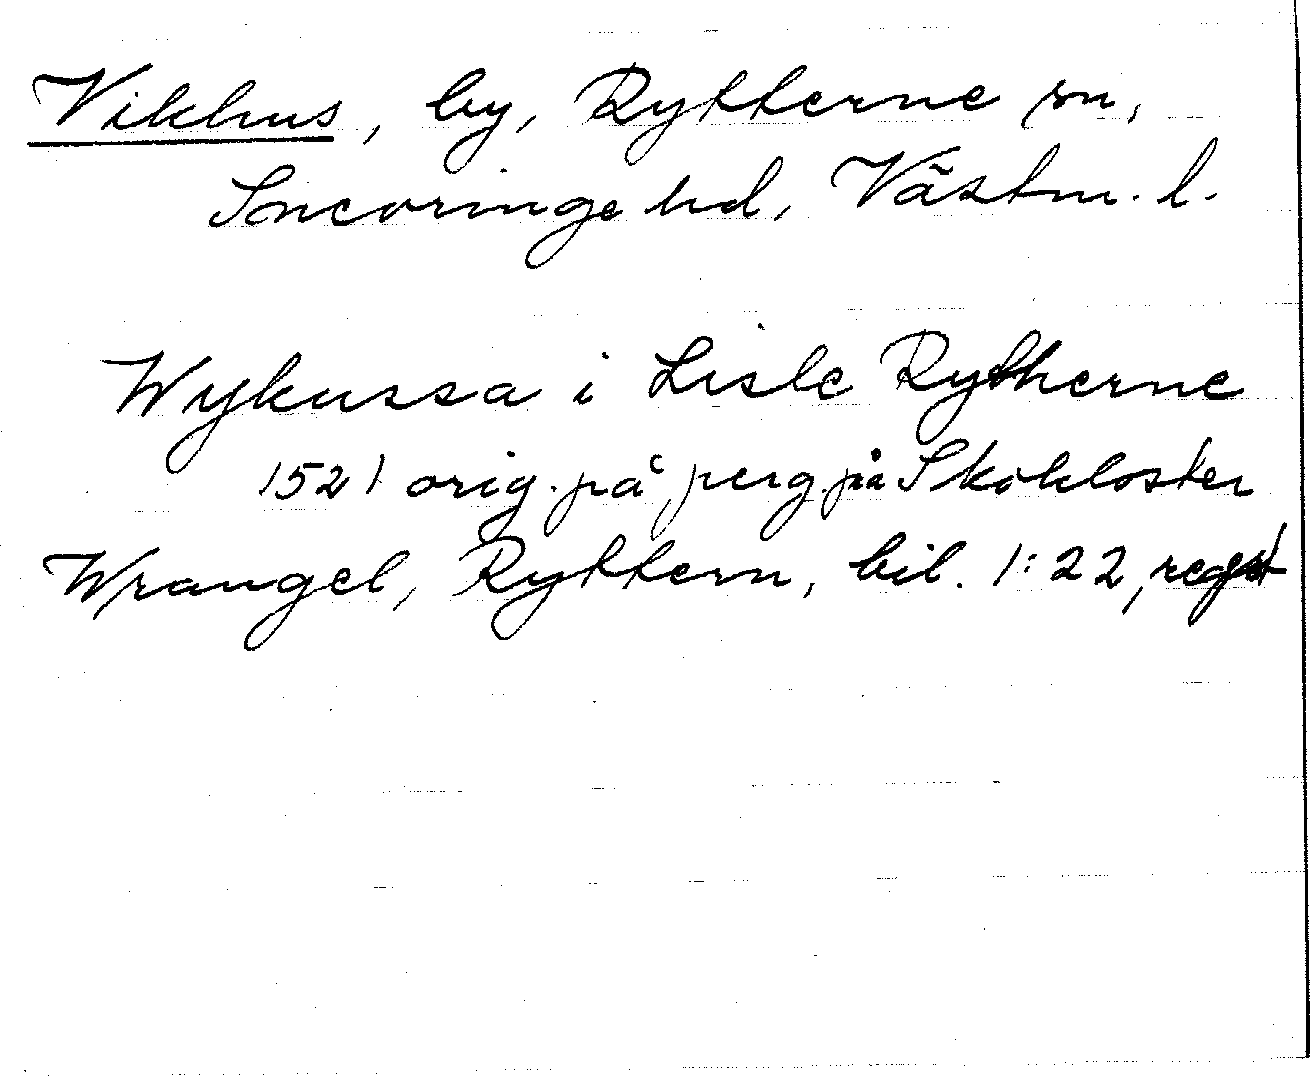 Vikhus, by, Rytterne sn,
Snevringe hd, Västm. l.
Wykussa i Lisle Rytherne
1521 orig. på perg. på Skokloster
Wrangel, Ryttern, bil. 1:22, regst